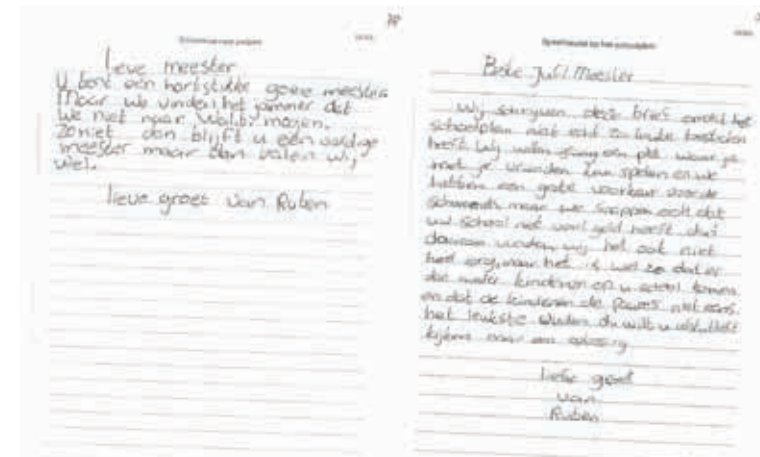 lieve meester
U bent een hartstikke goeie meester
Maar we vinden het jammer dat
we niet naar Walibi mogen.
Zoniet dan blijft u een aardige
meester maar dan balen wij
wel.
lieve groet van Ruben
Beste Juf/Meester
Wij schrijven deze brief omdat het
schoolplein niet echt zo leuke toestellen
heeft Wij willen graag een plek waar je
met je vrienden kan spelen en we
hebben een grote voorkeur voor de
maar we snappen ook dat
uw school niet veel geld heeft dus
daarom vinden wij het ook niet
heel erg, maar het is wel zo dat er
dan minder kinderen op u school komen
en dat de kinderen de pauzes niet eens
het leukste vinden dus wilt u alstublieft
kijken naar een oplossing
liefse groet
van
Ruben